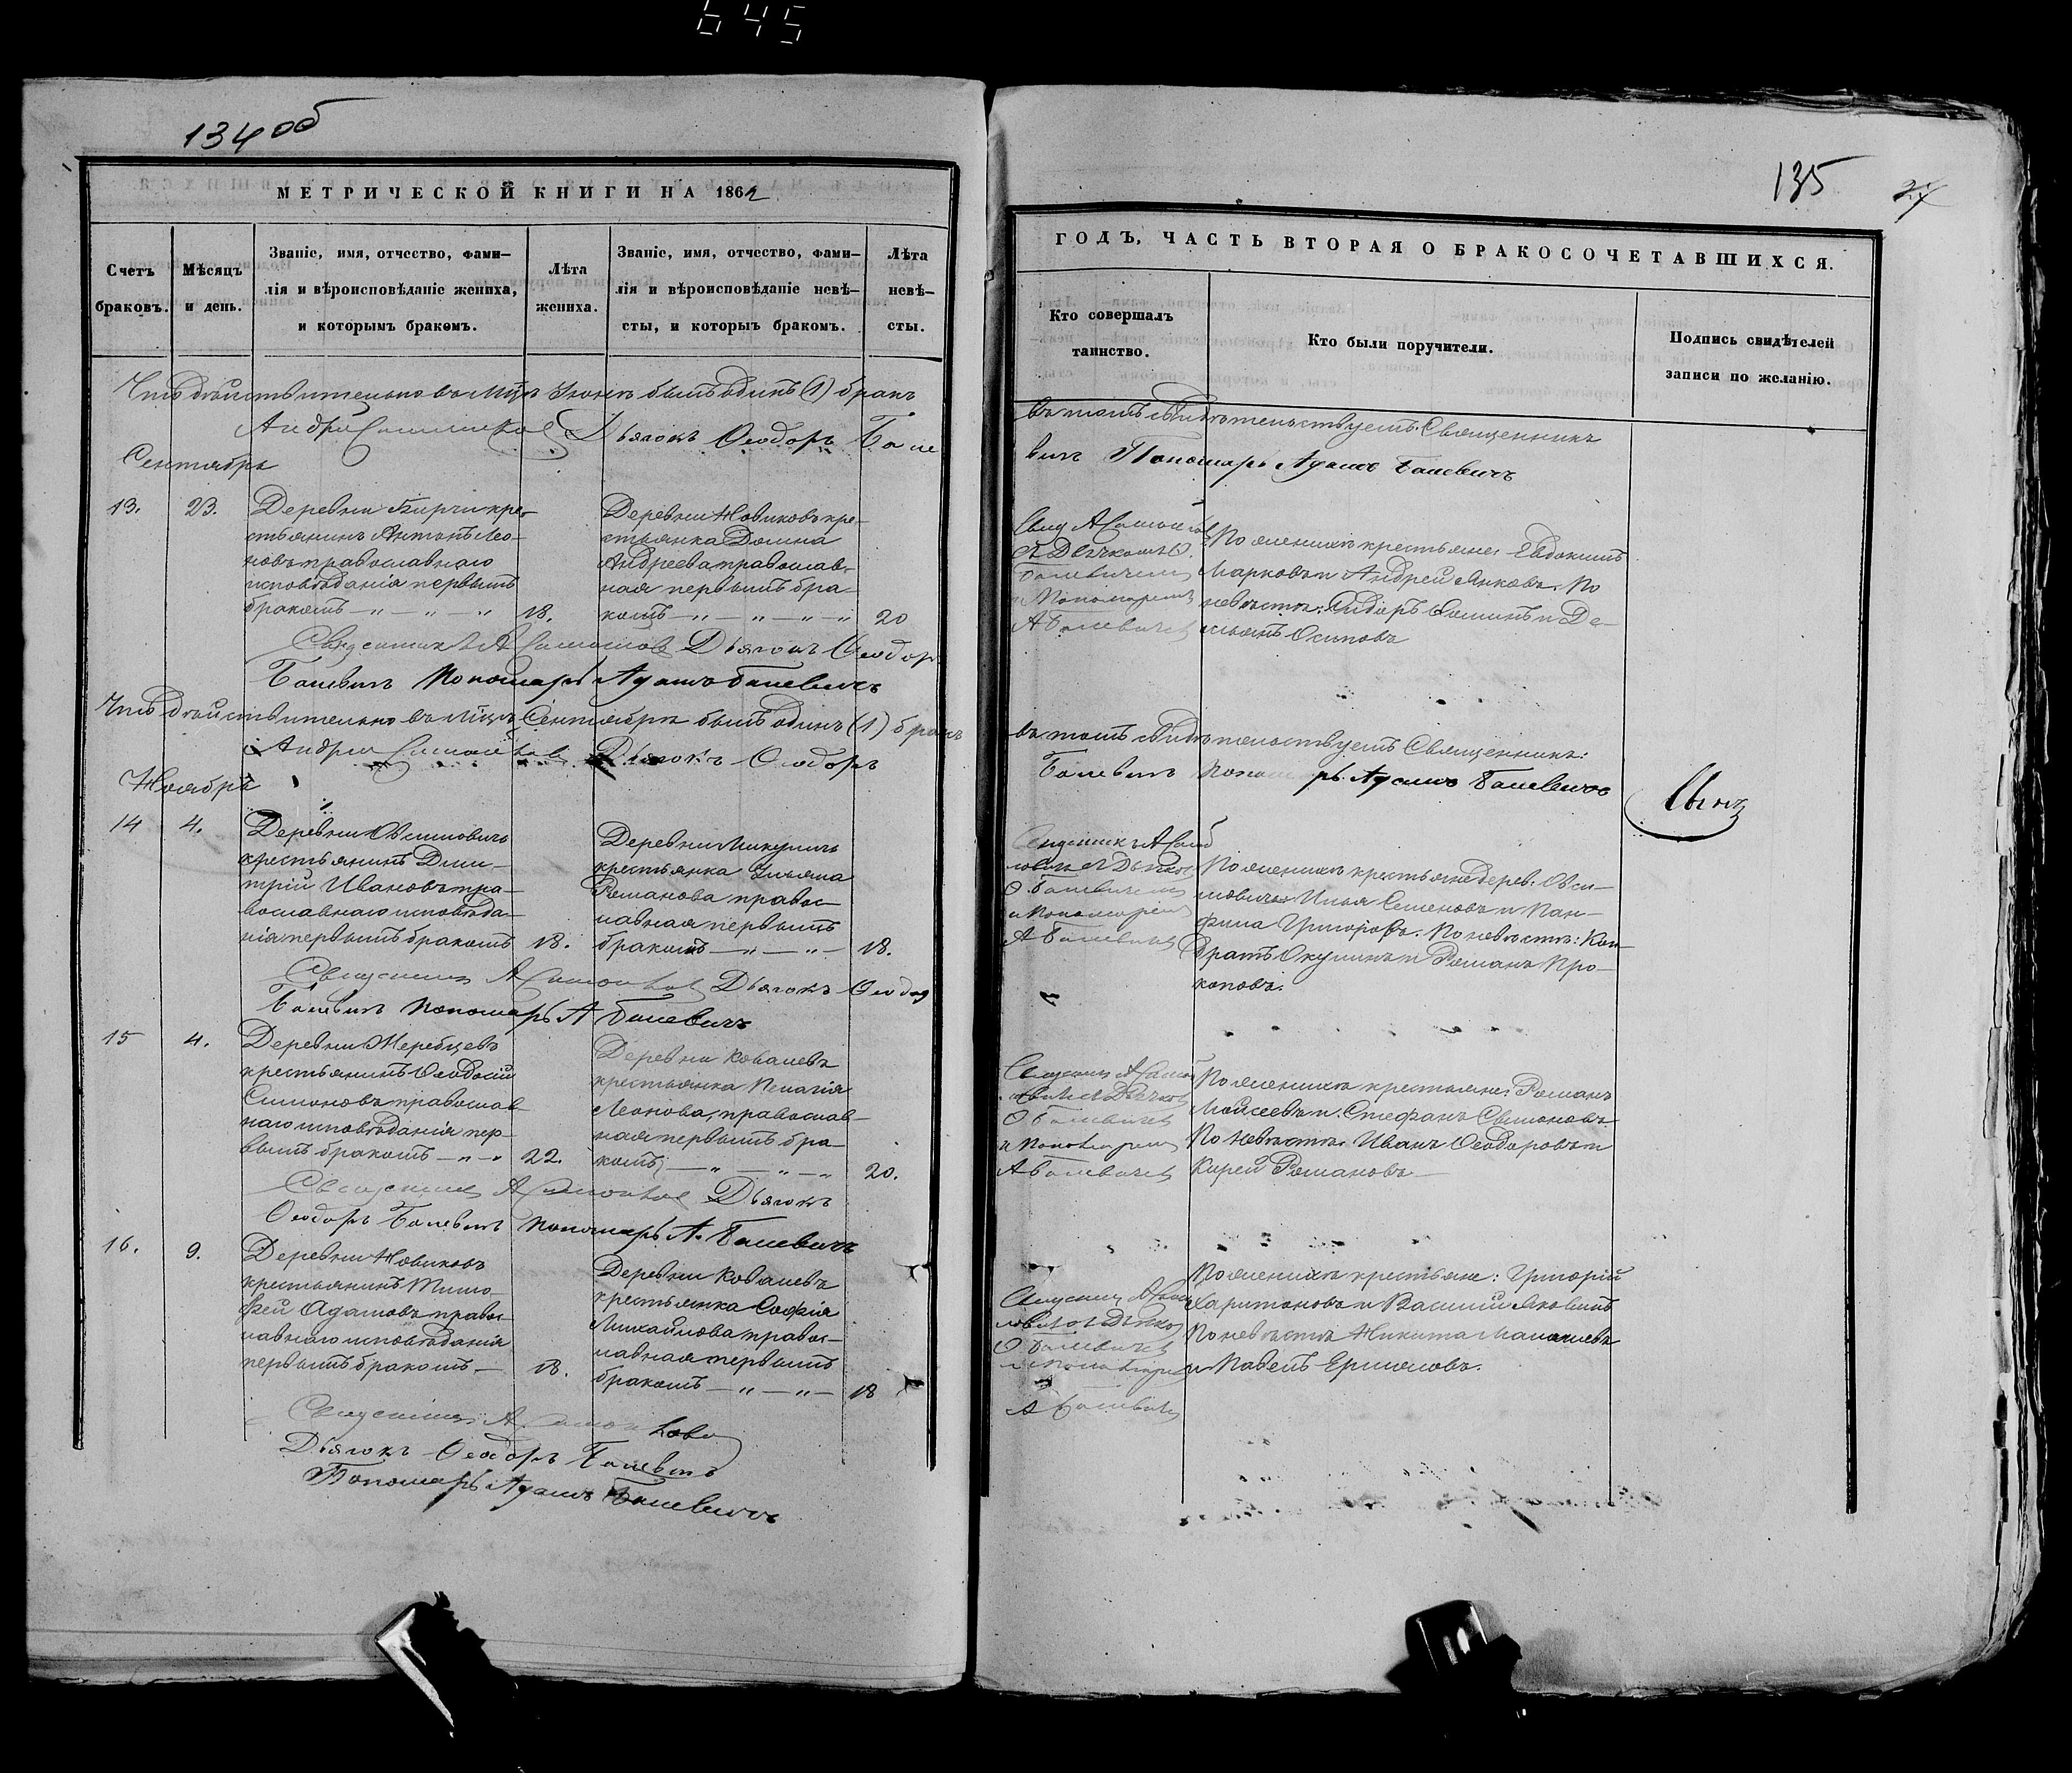 645
134 об
МЕТРИЧЕСКОЙ КНИГИ НА 1862
Счетъ браковъ.
Мѣсяцъ и день.
Званіе, имя, отчество, фами-
лія и вѣроисповѣданіе жениха,
и которымъ бракомъ.
Лѣта жениха.
Званіе, имя, отчество, фами-
лія и вѣроисповѣданіе невѣ-
сты, и которыъ бракомъ.
Лѣта невѣ-
сты.
Что дѣйствительно въ Мцѣ Іюнѣ былъ одинъ (1) бракъ
Андрей Дьячокъ Ѳеодоръ
Сентябрь
13. 23.
Деревни кре-
стьянинъ Антонъ Лео-
новъ православнаго
исповѣданія первымъ
бракомъ — „ — „ — „ 18.
Деревни Новиковъ кре-
стьянка Домна
Андреева православ-
ная первымъ бра-
комъ — „ — „ — „ — „ 20
Священникъ А Дьячокъ Ѳеодоръ
Балевичъ Пономарь Адамъ Балевичъ
Что дѣйствительно въ Мцѣ Сентябрѣ былъ одинъ (1) бракъ
Андрей Дьячокъ Ѳеодоръ
Ноябрь
14 4.
Деревни Овсиовичъ
крестьянинъ Дми-
трій Ивановъ пра-
вославнаго исповѣда-
нія первымъ бракомъ 18.
Деревни Микуличъ
крестьянка Ульяна
Романова правос-
лавная первымъ
бракомъ — „ — „ — 18.
Священникъ А Дьячокъ Ѳеодоръ
Балевичъ Пономарь А Балевичъ
15 4.
Деревни Жеребцевъ
крестьянинъ Ѳеодосій
Симоновъ православ-
наго исповѣданія пер-
вымъ бракомъ — „ — „ 22.
Деревни Ковалевъ
крестьянка Пелагія
Леонова, православ-
ная первымъ бра-
комъ — „ — „ — „ 20.
Священникъ А Дьячокъ
Ѳеодоръ Балевичъ Пономарь А. Балевичъ
16. 9.
Деревни Новиковъ
крестьянинъ Тимо-
фей Адамовъ правос-
лавнаго исповѣданія
первымъ бракомъ — 18.
Деревни Ковалевъ
крестьянка Софія
Михайлова правос-
лавная первымъ
бракомъ — „ — „ — 18
Священникъ А.
Дьячокъ Ѳеодоръ Балевичъ
Пономарь Адамъ Балевичъ
135
27
ГОДЪ, ЧАСТЬ ВТОРАЯ О БРАКОСОЧЕТАВШИХСЯ.
Кто совершалъ
таинство.
Кто были поручители.
Подпись свидѣтелей
записи по желанію.
въ томъ свидѣтельствуетъ: Священникъ
вичъ Пономарь Адамъ Балевичъ
Балевичемъ
и Пономаремъ
А Балевичемъ
По женихѣ крестьяне: Евдокимъ
Марковъ и Андрей Янковъ. По
невѣстѣ: Сидоръ Ѳоминъ и Де-
мьянъ Осиповъ
въ томъ свидѣтельствуетъ Священникъ:
Балевичъ Пономарь Адамъ Балевичъ
Священникъ А
Ѳ Балевичемъ
и Пономаремъ
А Балевичемъ
По женихѣ крестьяне дерев: Овси-
мовичъ: Илья Семеновъ и Пан-
фила Григоровъ. По невѣстѣ: Кон-
дратъ Окулинъ и Романъ Про-
коповъ.
Ѳ Балевичемъ
и Пономаремъ
А Балевичемъ
По женихѣ крестьяне: Романъ
Мойсеевъ и Стефанъ Симоновъ
По невѣстѣ: Иванъ Ѳеодоровъ и
Кирей Романовъ —
Ѳ Балевичемъ
и Пономаремъ
А Балевичемъ
По женихѣ крестьяне: Григорій
Харитоновъ и Василій Яковлевъ
По невѣстѣ Никита Малашевъ
и Павелъ Ермоловъ.